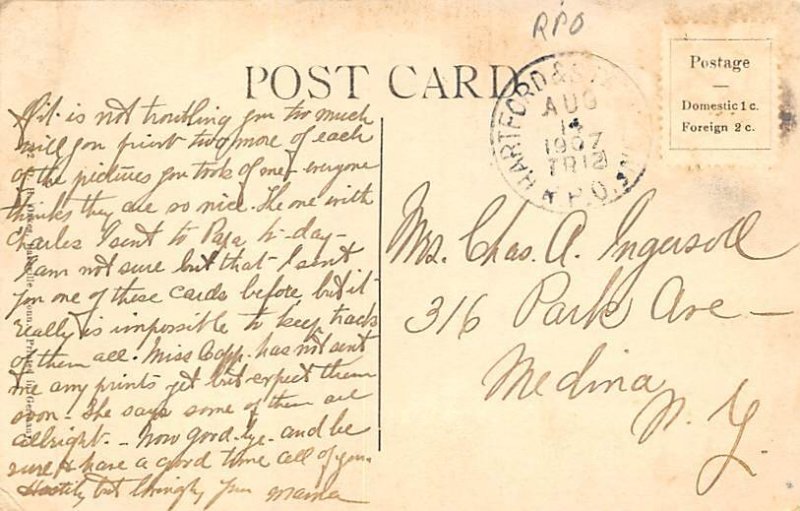 RPO
POST CARD
HARTFORD &
AUG
14
1907
TR 12
R.P.O.
Postage
Domestic 1 c.
Foreign 2 c.
If it is not troubling you too much
will you print two more of each
of the pictures you took of me - everyone
thinks they are so nice. The one with
Charles I sent to Papa to-day -
I am not sure but that I sent
you one of these cards before, but it
really is impossible to keep track
of them all. Miss Copp. has not sent
me any prints yet but expect them
soon - She says some of them are
allright - Now good-bye - and be
sure & have a good time all of you.
Hastily but lovingly your mama
Mrs. Chas. A. Ingersoll
316 Park Ave -
Medina
N. Y.